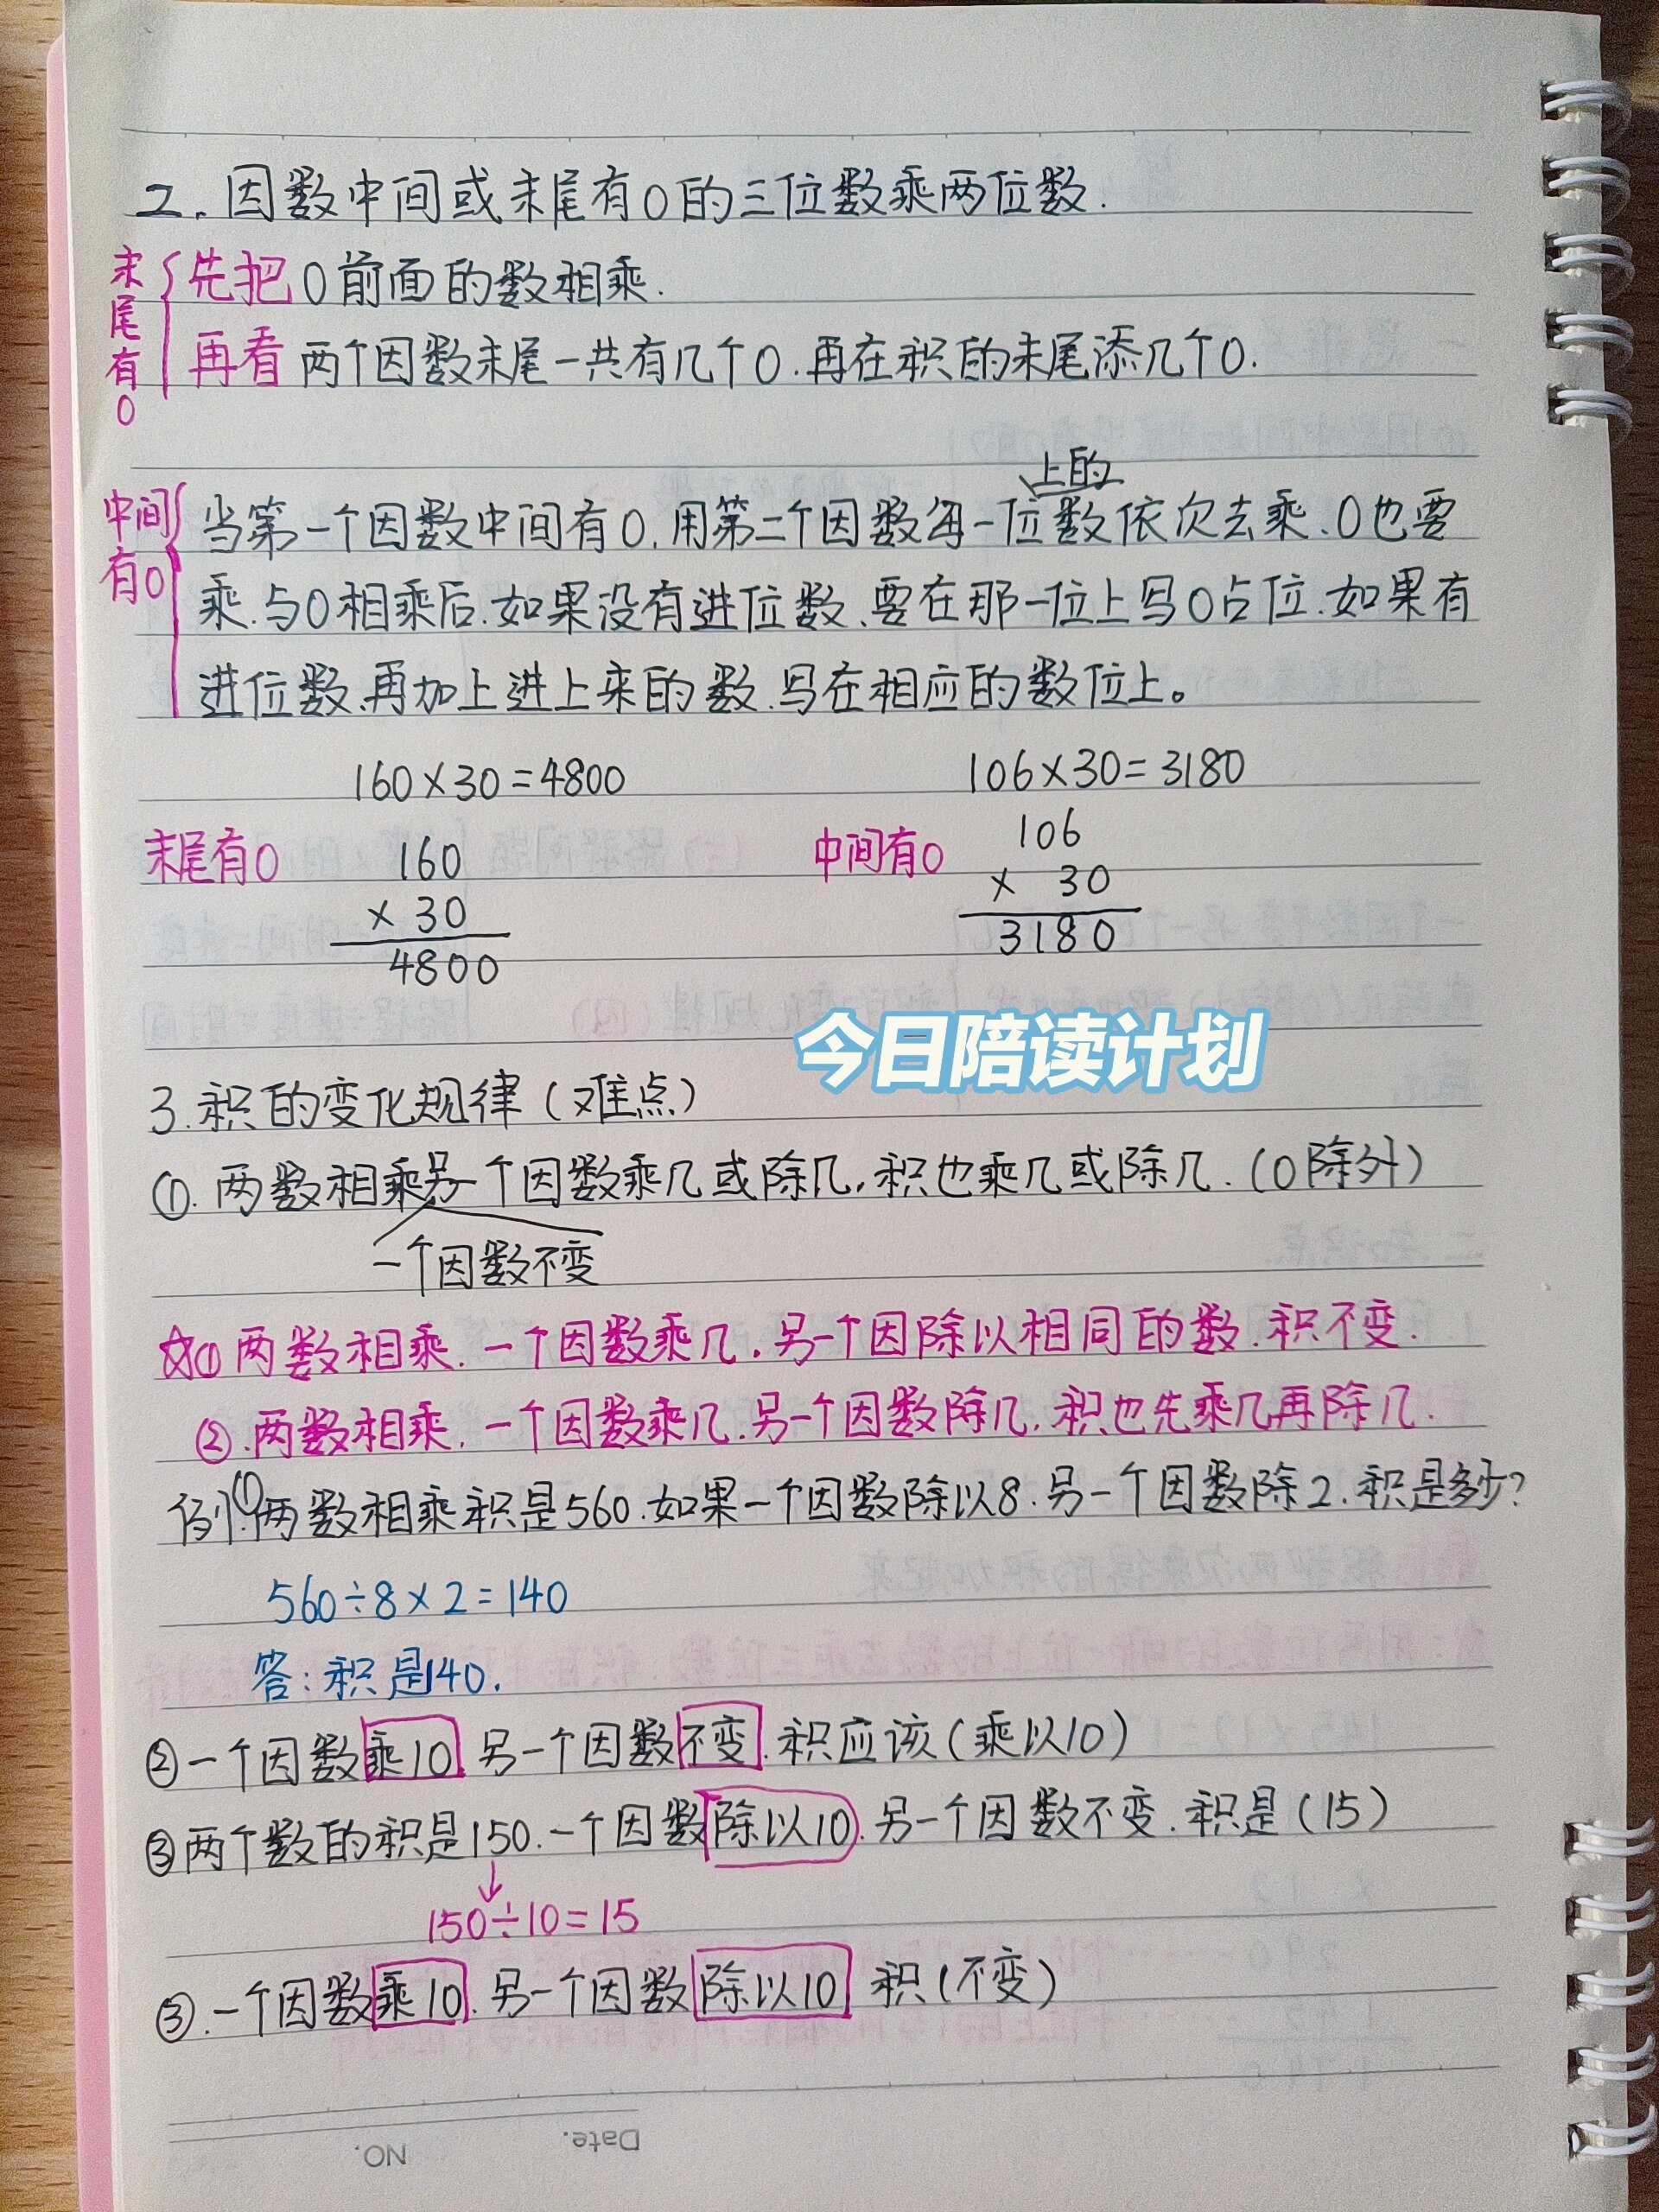 2.因数中间或末尾有0的三位数乘两位数.
末尾有0
先把0前面的数相乘.
再看两个因数末尾一共有几个0.再在积的末尾添几个0.
中间有0
上的
当第一个因数中间有0,用第二个因数每一位数依次去乘、0也要
乘.与0相乘后.如果没有进位数、要在那一位上写0占位.如果有
进位数、再加上进上来的数.写在相应的数位上。
160×30=4800
106×30=3180
末尾有0
160
×30
4800
中间有0
106
× 30
3180
今日陪读计划
3.积的变化规律(难点)
①.两数相乘另一个因数乘几或除几,积也乘几或除几.(0除外)
一个因数不变
☆①两数相乘.一个因数乘几.另一个因除以相同的数.积不变.
②.两数相乘.一个因数乘几.另一个因数除几.积也先乘几再除几.
例①两数相乘积是560.如果一个因数除以8.另一个因数除2.积是多少?
560÷8×2=140
答:积是140.
②一个因数乘10.另一个因数不变.积应该(乘以10)
③两个数的积是150.一个因数除以10.另一个因数不变.积是(15)
150÷10=15
③.一个因数乘10.另一个因数除以10 积(不变)
Date.
NO.